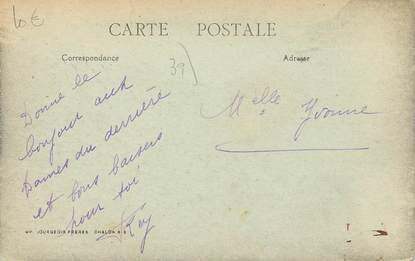 10€
CARTE POSTALE
Correspondance
Adresse
39)
Donne le
bonjour aux
Dames du derrière
et bons baisers
pour toi
Melle Yvonne
BOURGEOIS FRÈRES CHALON S S